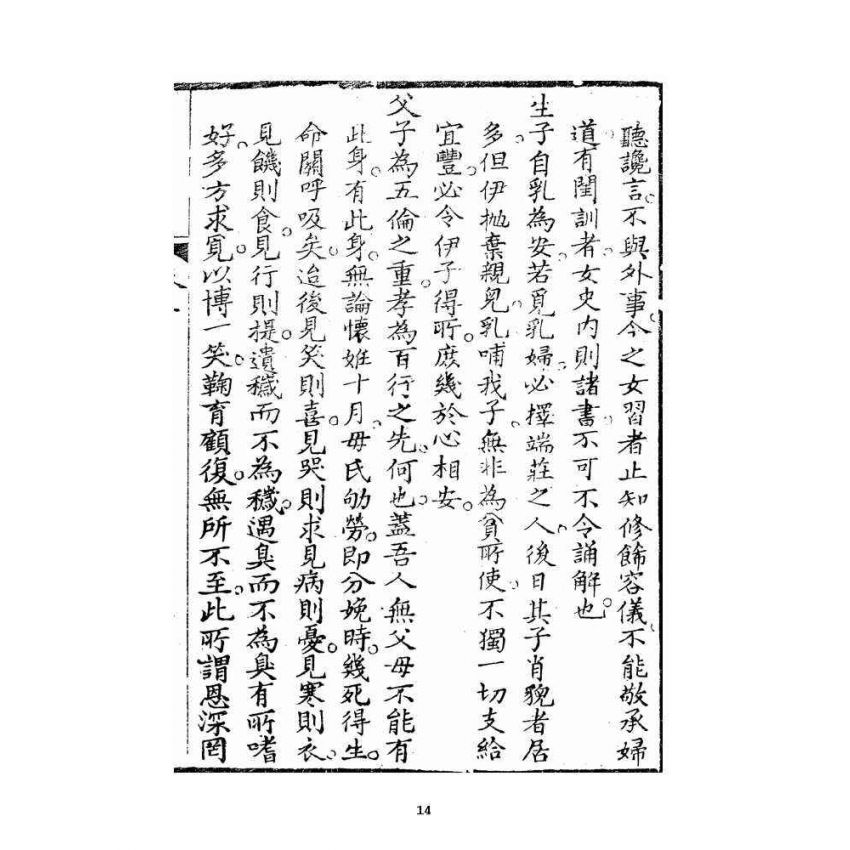 聽讒言。不與外事。今之女習者止知修飾容儀。不能敬承婦
道。有閨訓者。女史內則諸書。不可不令誦解也。
生子自乳為安。若覓乳婦。必擇端莊之人。後日其子肖貌者居
多。但伊拋棄親兒。乳哺我子。無非為貧所使。不獨一切支給
宜豐。必令伊子得所。庶幾於心相安。
父子為五倫之重。孝為百行之先。何也。蓋吾人無父母不能有
此身。有此身。無論懷姙十月。母氏劬勞。即分娩時。幾死得生。
命關呼吸矣。迨後見笑則喜。見哭則求。見病則憂。見寒則衣。
見饑則食。見行則提。遺穢而不為穢。遇臭而不為臭。有所嗜
好。多方求覓。以博一笑。鞠育顧復。無所不至。此所謂恩深罔
14